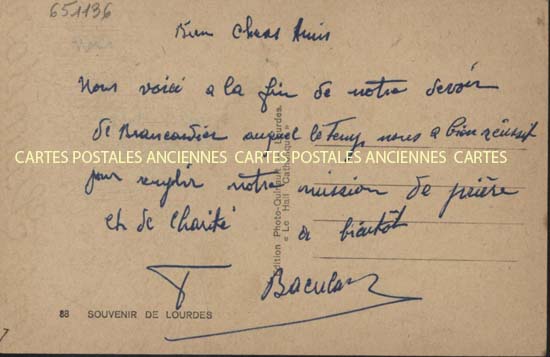 651136
Bien chers Amis
Nous voici a la fin de notre devoir
de Brancardier auquel le Temps nous a bien réussit
CARTES POSTALES ANCIENNES CARTES POSTALES ANCIENNES CARTES
pour remplir notre mission de prière
et de charité a bientôt
Édition Photo-Quinault Lourdes.
« Le Hall Catholique »
88 SOUVENIR DE LOURDES